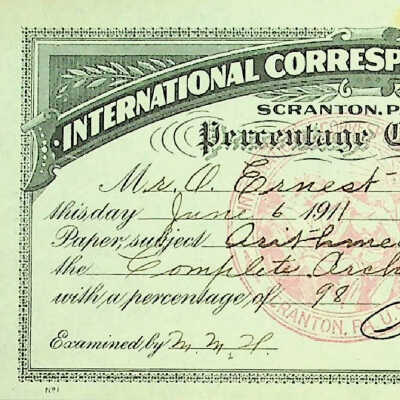 INTERNATIONAL CORRESP
SCRANTON, P
Percentage C
Mr. O. Ernest
this day June 6 1911
Paper, subject Arithme
the Complete Arch
with a percentage of 98
SCRANTON, PA. U.
Examined by M. M. H.
Nº1